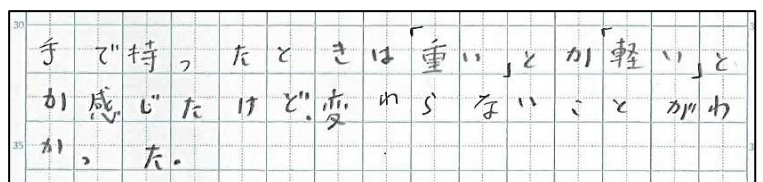 30
手で持ったときは「重い」とか「軽い」と
か感じたけど、変わらないことがわ
35 かった。